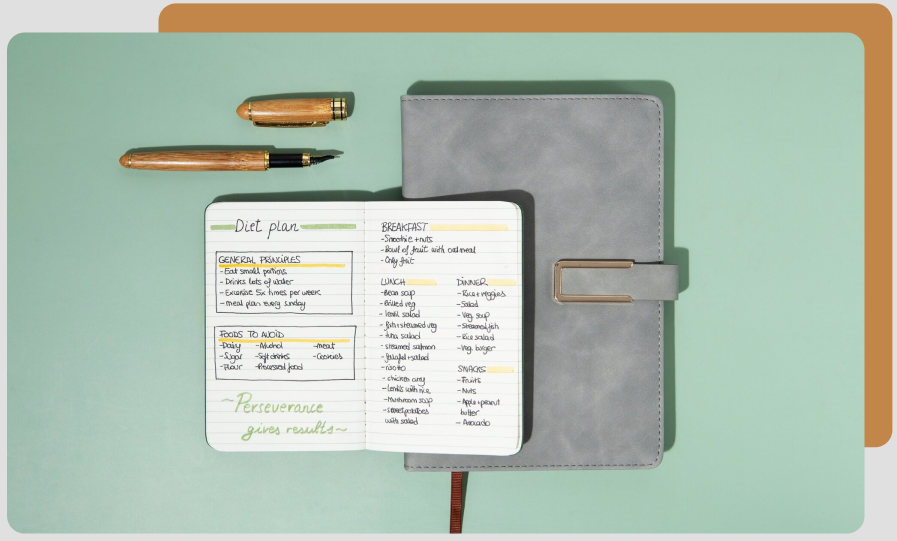 Diet plan
GENERAL PRINCIPLES
- Eat small portions
- Drinks lots of water
- Exercise Six times per week
- meal plan every Sunday
FOODS TO AVOID
- Dairy
- Sugar
- Flour
- Alcohol
- Soft drinks
- Processed food
- meat
~Perseverance
gives results~
BREAKFAST
- Smoothie + nuts
- Bowl of fruit with oatmeal
- Only fruit
LUNCH
- Bean soup
- Grilled veg
- lentil salad
- fish + steamed veg
- tuna salad
- steamed salmon
- falafel + salad
- risotto
- chicken curry
- Lentils with rice
- Mushroom soup
- sweet potatoes
with salad
DINNER
- Rice + veggies
- Salad
- Veg soup
- Steamed fish
- Rice salad
- Veg. burger
SNACKS
- Fruits
- Nuts
- Apple + peanut
butter
- Avocado